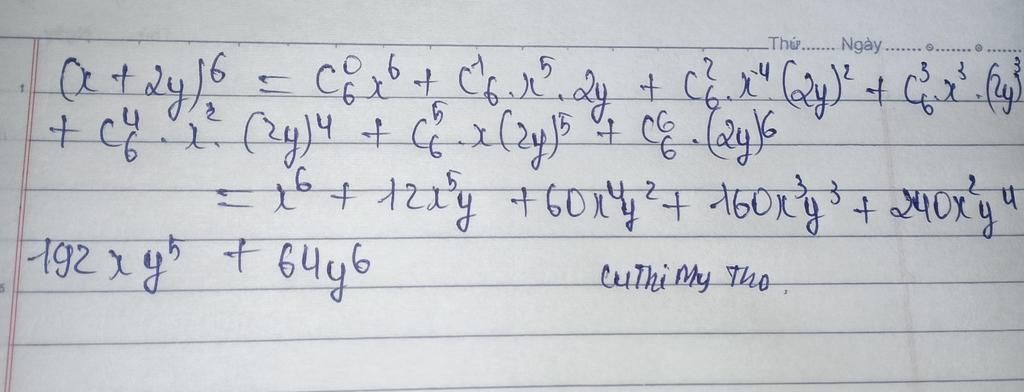 Thứ....... Ngày.......o.......o.......
(x + 2y)⁶ = C₆⁰x⁶ + C₆¹.x⁵.2y + C₆².x⁴(2y)² + C₆³.x³.(2y)³
+ C₆⁴.x².(2y)⁴ + C₆⁵.x(2y)⁵ + C₆⁶.(2y)⁶
= x⁶ + 12x⁵y + 60x⁴y² + 160x³y³ + 240x²y⁴
192xy⁵ + 64y⁶
CuThiMy Tho.